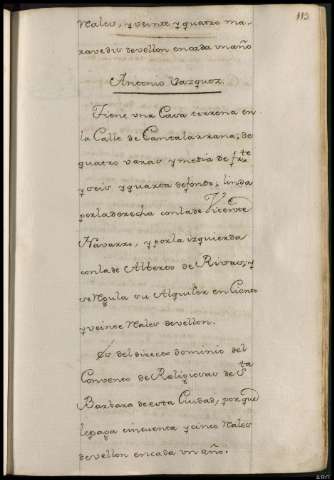 112
Rales, y veinte y quatro ma-
ravedis de vellon en cada un año
Antonio Vazquez.
Tiene una Casa terrena en
la Calle de Cantalarrana, de
quatro varas y media de frte
y seis y quarta de fondo, linda
por la derecha con la de Vicente
Navarro, y por la izquierda
con la de Alberto de Rivas, y
se regula su Alquiler en Ciento
y veinte Rales de vellon.
Es del directo dominio del
Convento de Religiosas de Sta
Barbara de esta Ciudad, por que
le paga cincuenta y cinco Rales
de vellon en cada un año.